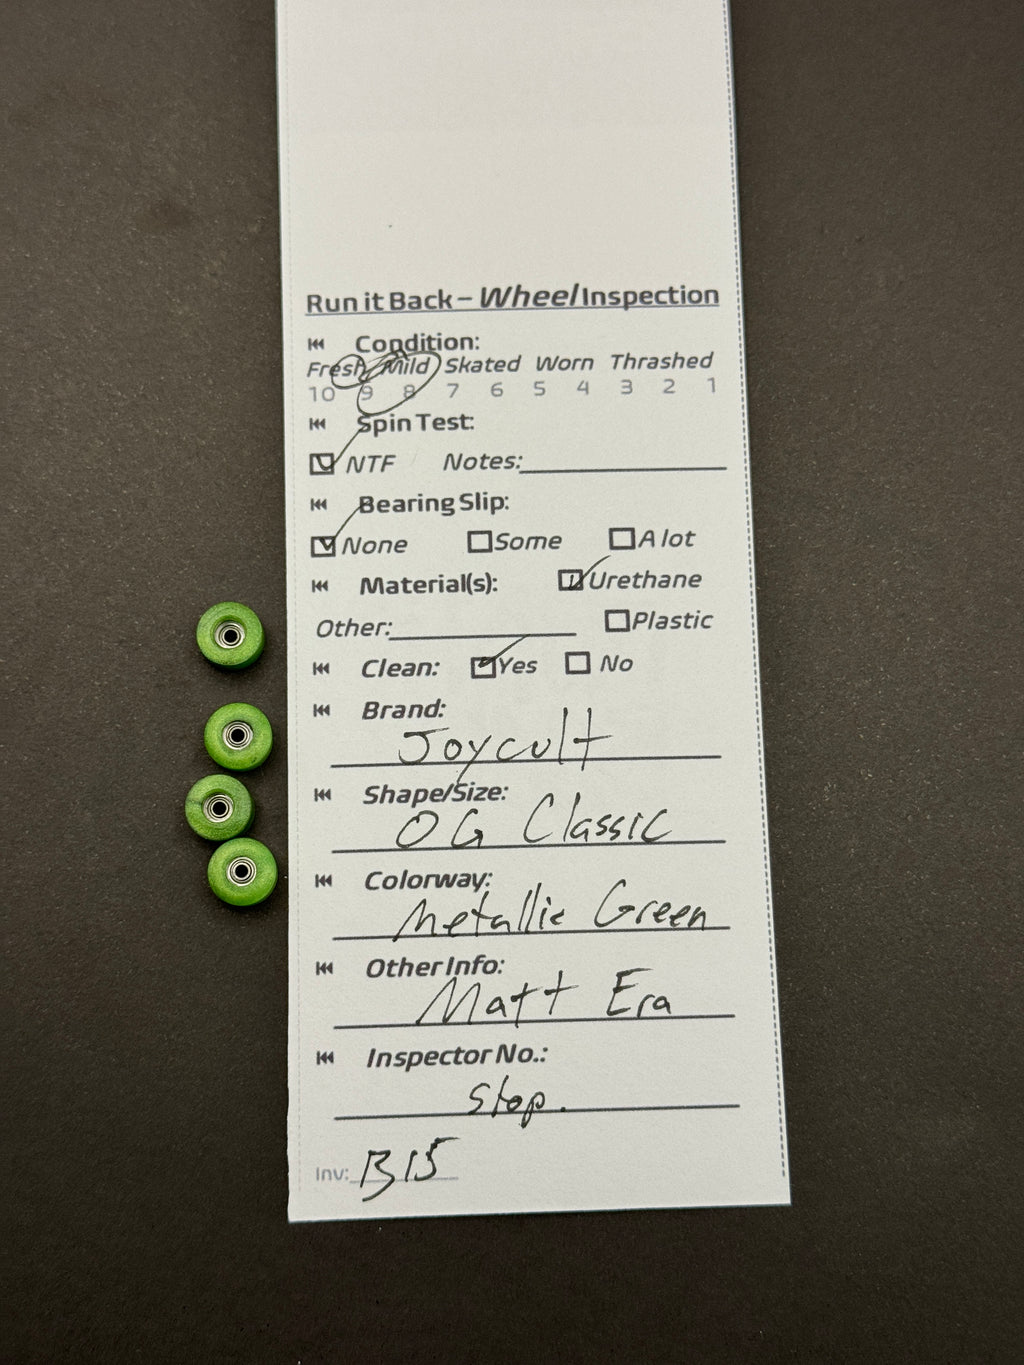 Run it Back – Wheel Inspection
Condition:
Fresh Mild Skated Worn Thrashed
10 9 8 7 6 5 4 3 2 1
Spin Test:
NTF Notes:
Bearing Slip:
None Some A lot
Material(s): Urethane
Other: Plastic
Clean: Yes No
Brand:
Joycult
Shape/Size:
OG Classic
Colorway:
Metallic Green
Other Info:
Matt Era
Inspector No.:
Stop.
Inv: B15